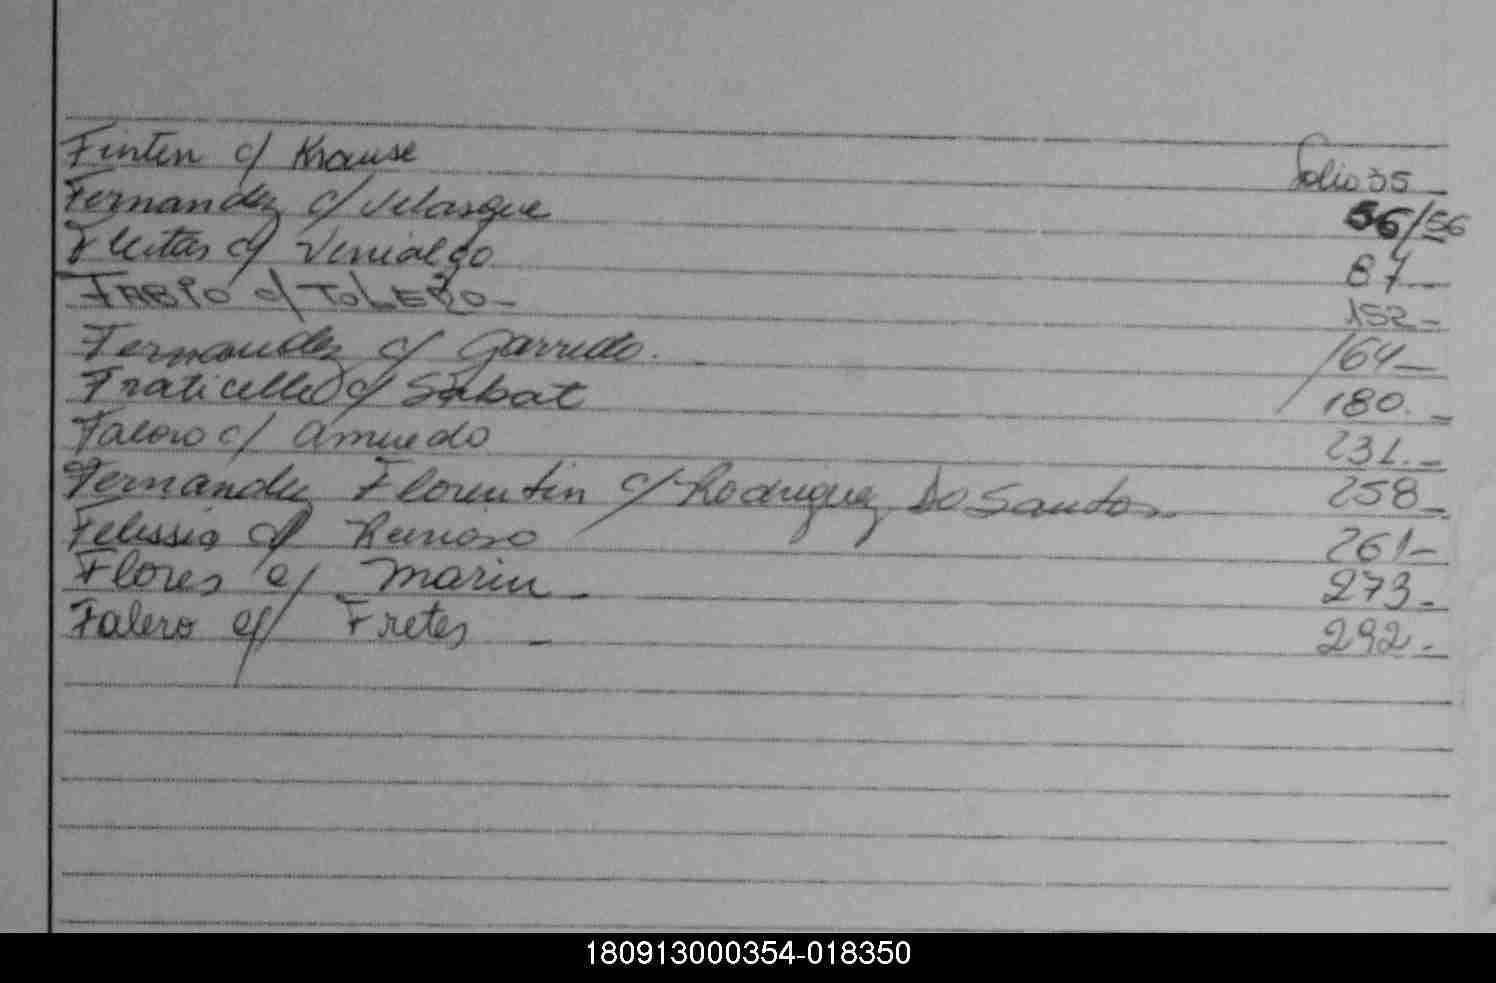 Finten c/ Krause Folio 35
Fernandez c/ Velasque 56/56
Fleitas c/ Venialgo 87
FABIO c/ TOLEDO 152
Fernandez c/ Garrido. 164
Fraticelle c/ Sabat 180.
Falero c/ Amuedo 231.
Fernandez Florentin c/ Rodriguez Do Santos 258
Felissia c/ Reinoso 261
Flores c/ Marin 273
Falero c/ Fretes 292
180913000354-018350